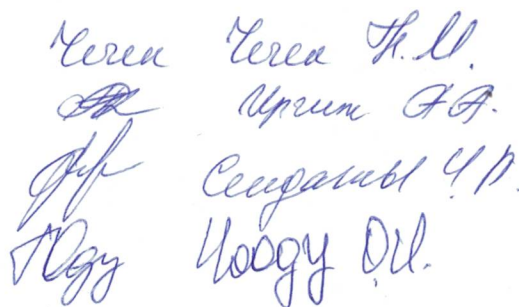 Чечек Чечек Т.М.
Иргит А А.
Сендажы Ч
Чооду О.И.